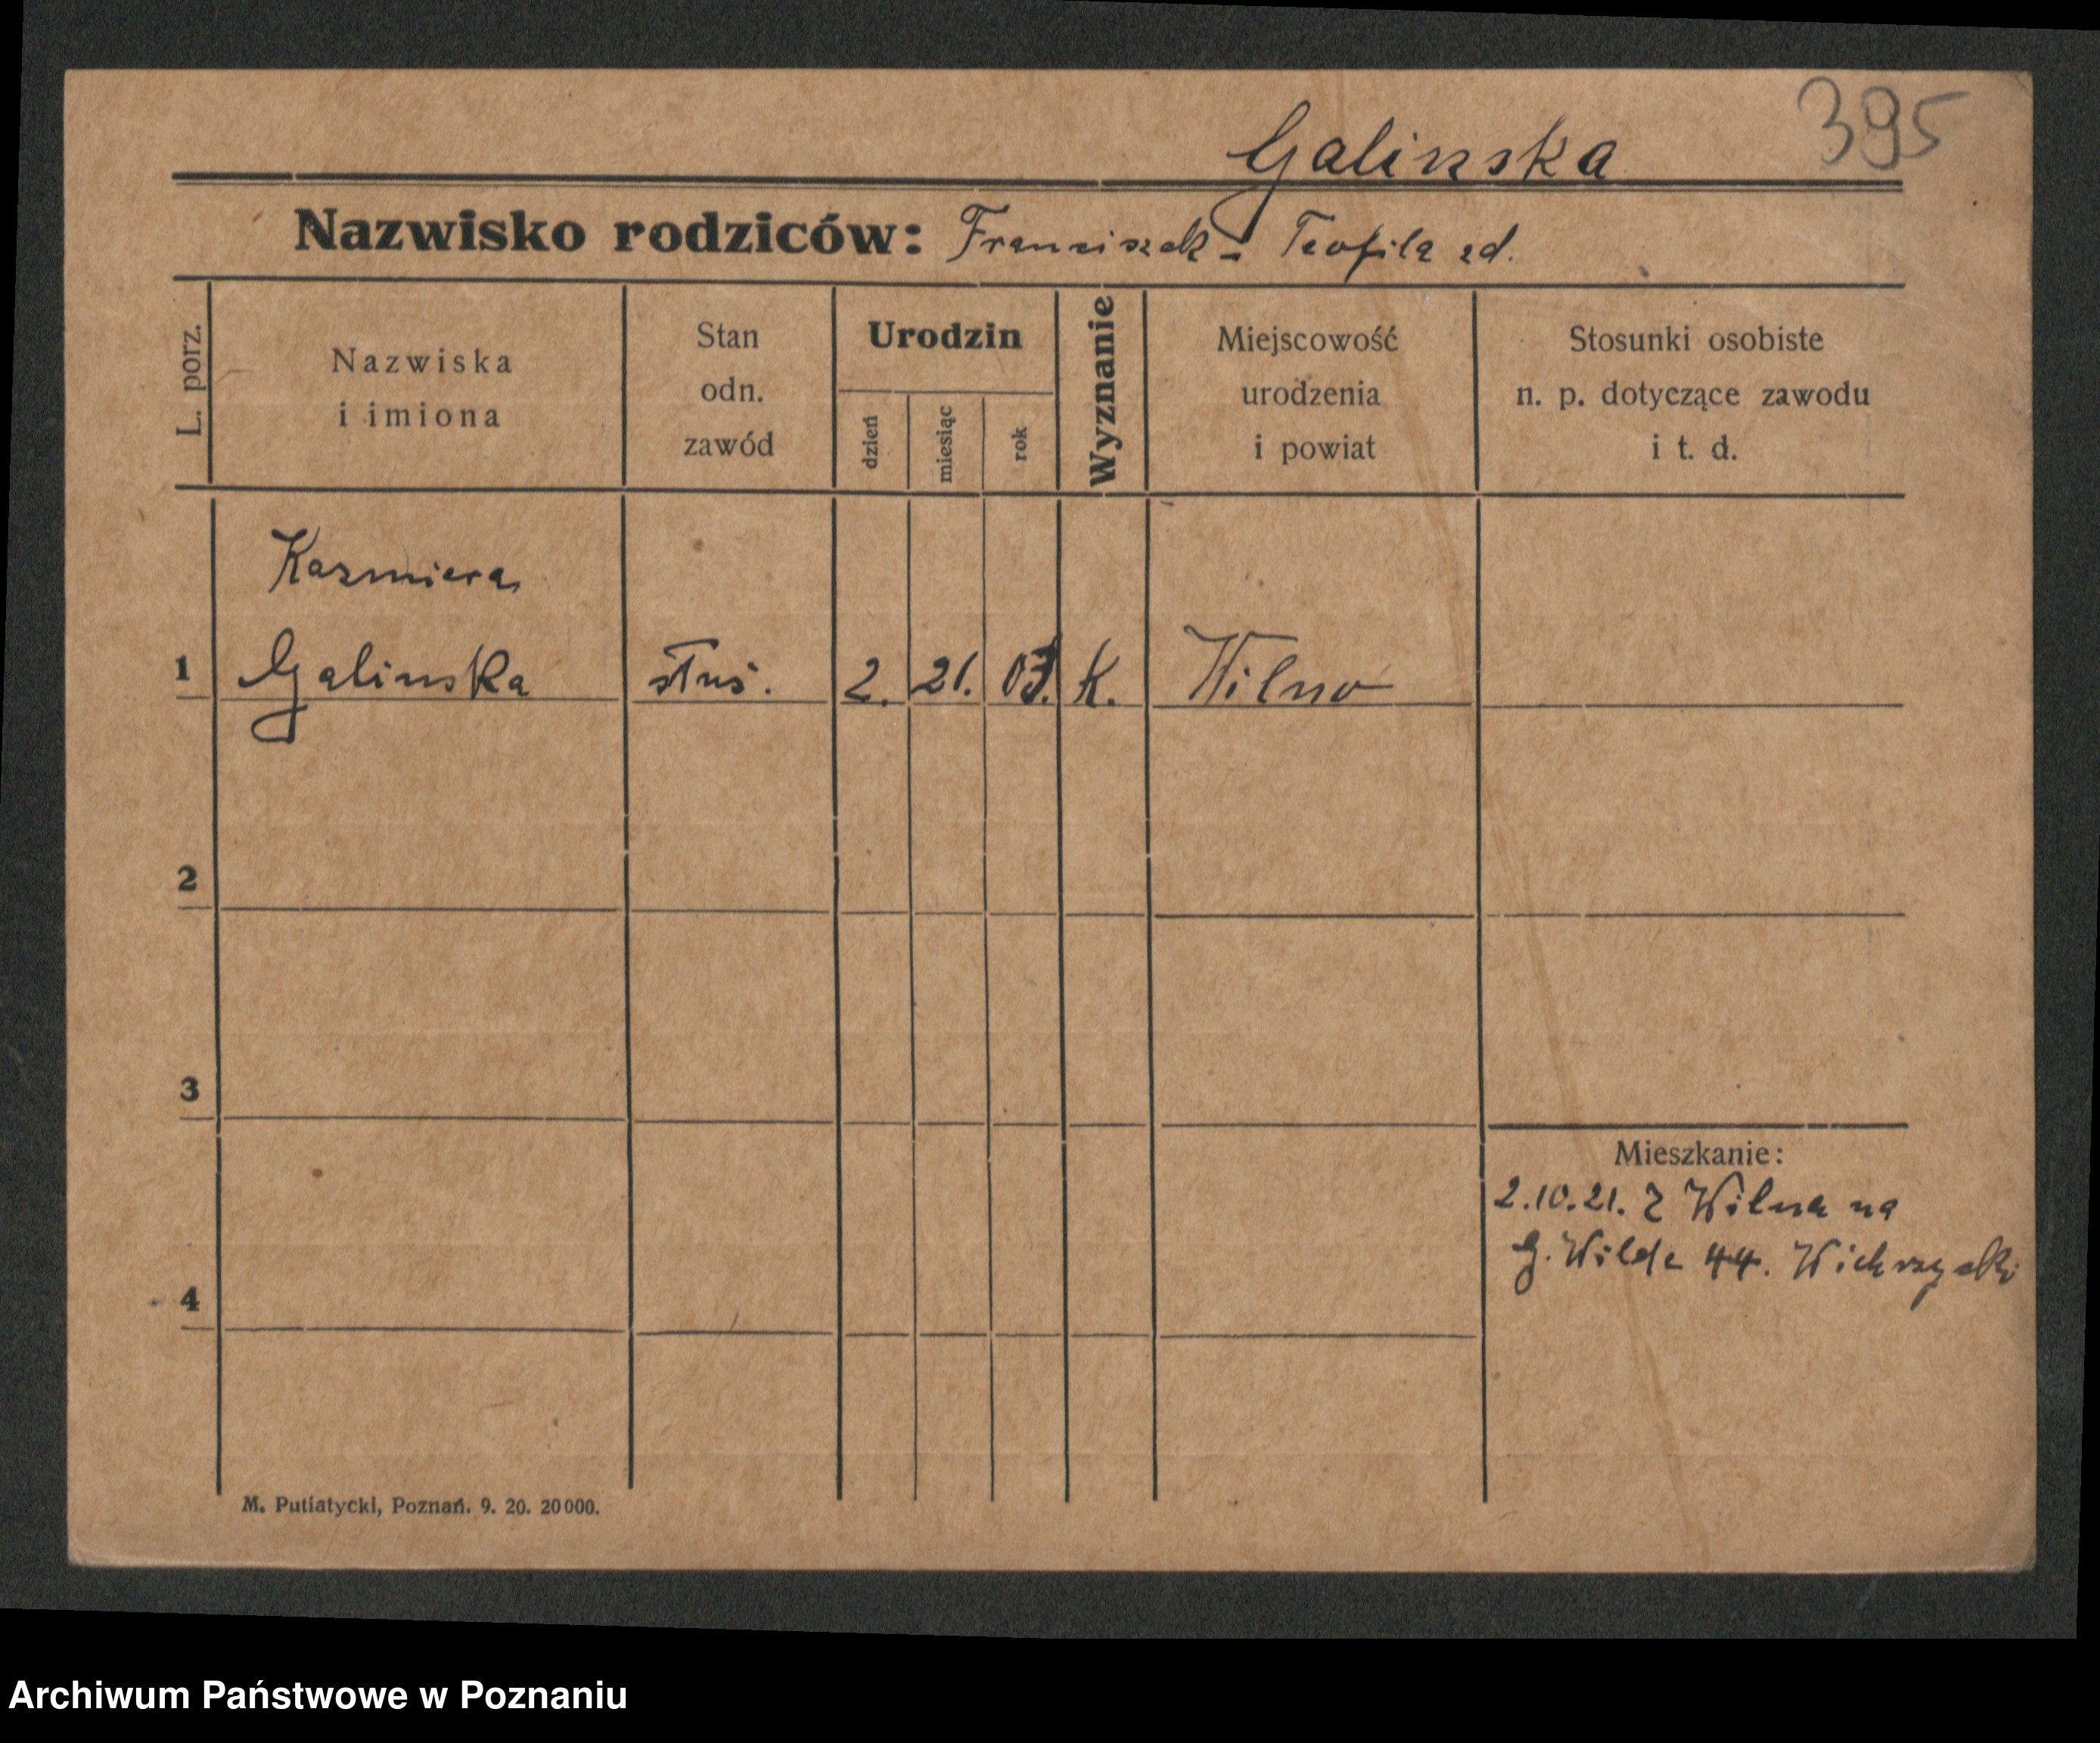 395
Galinska
Nazwisko rodziców: Franciszek - Teofila zd.
L. porz.
Nazwiska
i imiona
Stan
odn.
zawód
Urodzin
dzień
miesiąc
rok
Wyznanie
Miejscowość
urodzenia
i powiat
Stosunki osobiste
n. p. dotyczące zawodu
i t. d.
Kazmiera
1 Galinska służ. 2. 21. 03. K. Wilno
2
3
Mieszkanie:
2.10.21. z Wilna na
G. Wilde 44.
4
M. Putiatycki, Poznań. 9. 20. 20000.
Archiwum Państwowe w Poznaniu